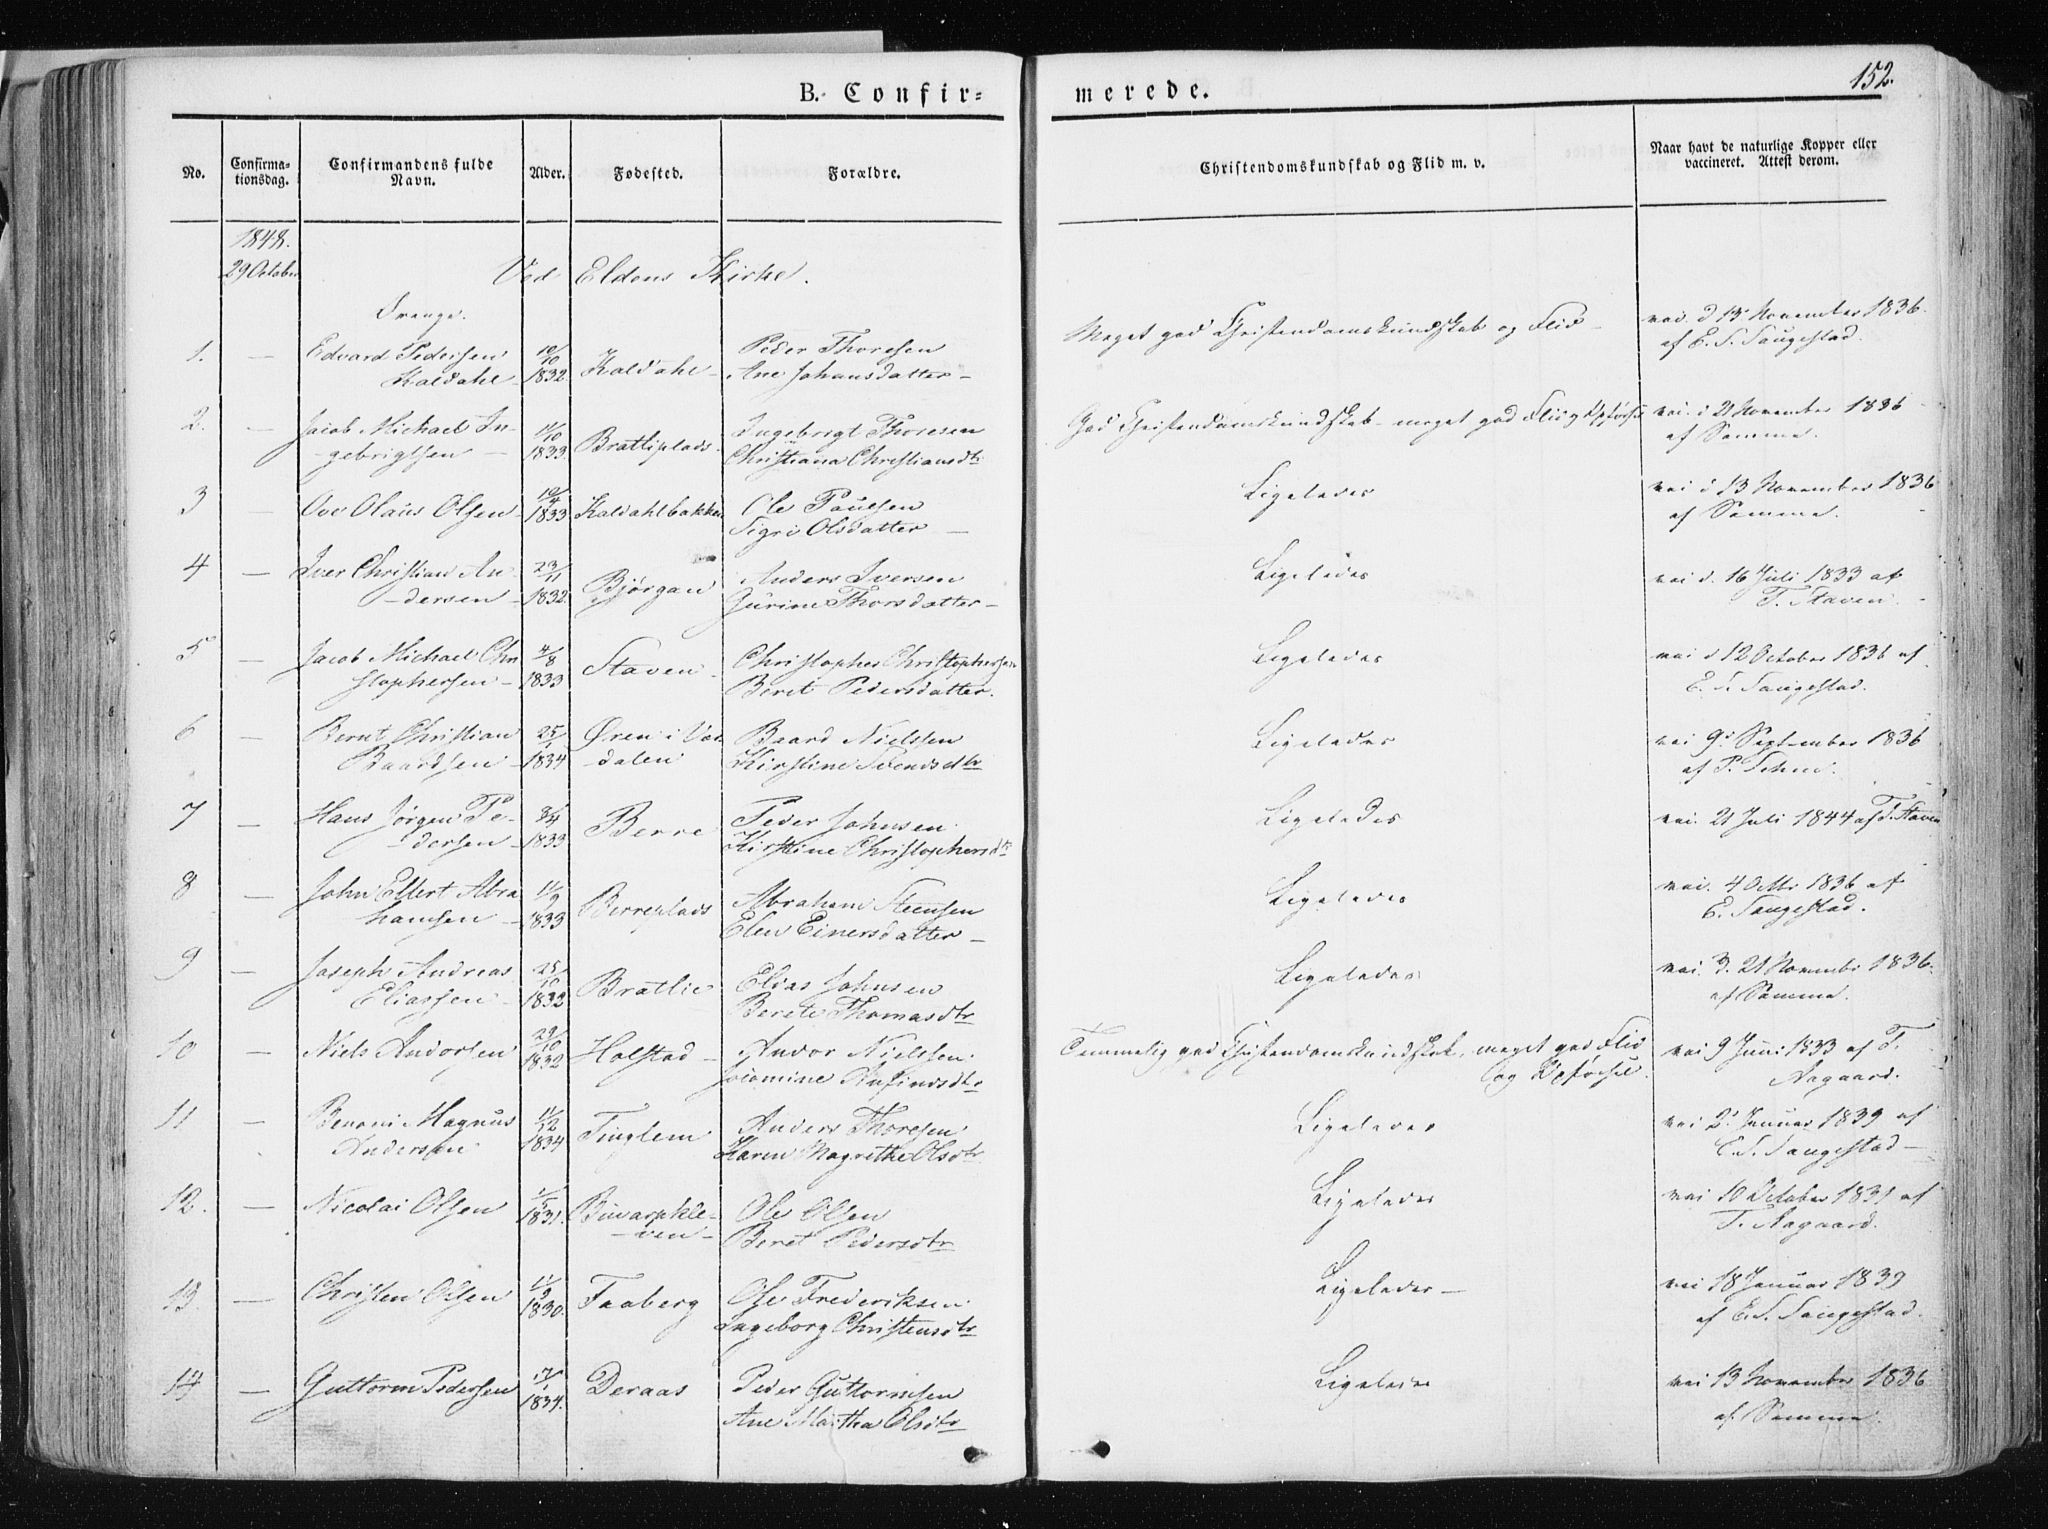 152.
B. Confir= merede.
No. Confirma-tionsdag. Confirmandens fulde Navn. Alder. Fødested. Forældre. Christendomskundskab og Flid m. v. Naar havt de naturlige Kopper eller vaccineret. Attest derom.
1848.
29 October Ved Eldens Kirke.
Drenge.
1. — Edvard Pedersen 10/10 Kaldahl – Peder Thoresen Meget god Christendomskundskab og Flid – vac. d 13 November 1836
Kaldahl – 1832 Ane Johansdatter – af E. S. Saugestad.
2. — Jacob Michael In- 11/10 Bratliplads Ingebrigt Thoresen God Christendomskundskab – meget god Flid og Opførsel vac. d 21 November 1836
-gebrigtsen – 1833. Christiana Christiansdtr af Samme.
3 — Ove Olaus Olsen – 10/4 1833 Kaldahlbakken Ole Paulsen Ligeledes vac d 13 November 1836
Sigri Olsdatter — af Samme.
4 — Iver Christian An- 23/11 Bjørgan Anders Iversen Ligeledes vac d. 16 Juli 1833 af
-dersen – 1832. Gurine Thorsdatter – T. Staven.
5 — Jacob Michael Chri 4/8 Staven – Christopher Christophersen Ligeledes vac d 12 October 1836 af
stophersen – 1833 Beret Pedersdatter. E. S. Saugestad.
6 — Bernt Christian 25/1 Øren i Vær Baard Nielsen Ligeledes vac 9 September 1836
Baardsen – 1834 -dalen Kirstine Svendsdtr
7 — Hans Jørgen Pe- Berre Peder Johnsen Ligeledes vac. 21 Juli 1844 af T. Staven
dersen – 1833 Kirstine Christophersdtr
8 — John Ellert Abra 11/9 Berreplads Abraham Steensen Ligeledes vac. 4 Octbr 1836 af
hamsen – 1833 Elen Einersdatter – E. Saugestad.
9 — Joseph Andreas 25/10 Bratlie Elias Johnsen Ligeledes vac. d. 21 Novembr 1836.
Eliassen – Berete Thomasdtr af Samme.
10 — Niels Andorsen 29/10 1832 Holstad – Andor Nielsen Temmelig god Christendomskundskab, meget god Flid vac 9 Juni 1833 af T.
Anfindsdtr og Opførsel. Aagaard.
11 — Benoni Magnus 11/12 Tinglem Anders Thoresen Ligeledes vac 2 Januar 1839 af
Andersen 1834 Karen Magrethe Olsdtr E. S. Saugestad —
12. — Nicolai Olsen Ole Olsen Ligeledes vac 10 October af
-ven – Beret Pedersdtr T. Aagaard.
13 — Christen Olsen 11/9 1830. Faaberg Ole Frederiksen Ligeledes – vac 18 Januar 1839
Ingeborg Christensdtr af E. S. Saugestad.
14 — Guttorm Pedersen 1834. Deraas Peder Guttormsen Ligeledes vac 13 November 1836
Ane Martha Olsdtr af Samme.